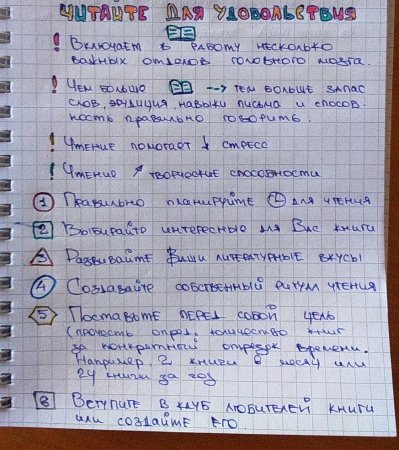 ЧИТАЙТЕ ДЛЯ УДОВОЛЬСТВИЯ
! Включает в работу несколько
важных отделов головного мозга.
! Чем больше --> тем больше запас
слов, эрудиция, навыки письма и способ-
ность правильно говорить.
! Чтение помогает ↓ стресс
! Чтение ↗ творческие способности
1 Правильно планируйте для чтения
2 Выбирайте интересные для Вас книги
3 Развивайте Ваши литературные вкусы
4 Создавайте собственный ритуал чтения
5 Поставьте перед собой цель
(прочесть опред. количество книг
за конкретный отрезок времени.
Например, 2 книги в месяц или
24 книги за год
6 Вступите в клуб любителей книги
или создайте его.